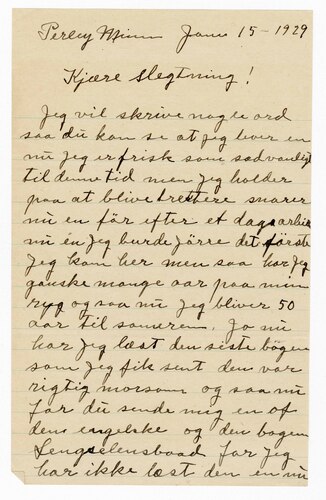 Perley Minn Jan 15 - 1929
Kjære Slegtning!
Jeg vil skrive nogle ord
saa du kan se at jeg lever en
nu jeg er frisk som sædvanligt
til denne tid men jeg holder
paa at blive trettere snarer
nu en för efter et dags arbeide
nu én jeg burde jörre det förste
jeg kom her men saa har jeg
ganske mange aar paa min
ryg ogsaa nu jeg bliver 50
aar til sameren. Jo nu
har jeg læst den siste bögen
som jeg fik sent den var
rigtig morsom og saa nu
får du sende mig en of
dem engelske og den bogen
Lengselensbaad for jeg
har ikke læst den en nu